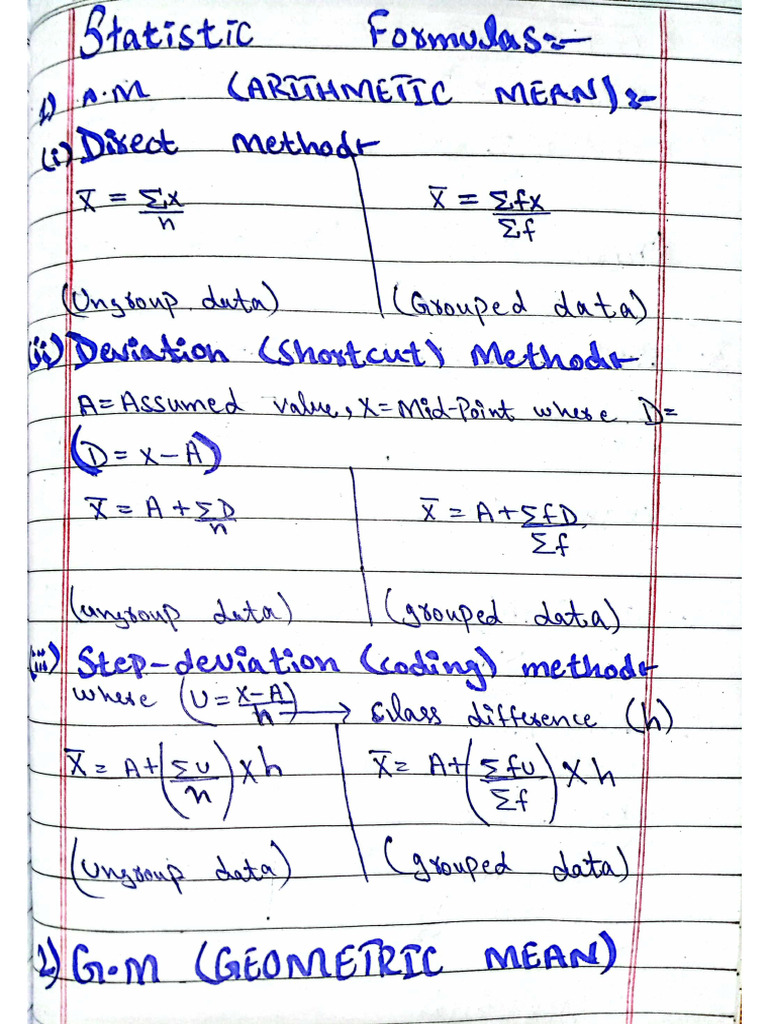 Statistic Formulas:-
1) A.M (ARITHMETIC MEAN):-
(i) Direct Method:-
X̄ = Σx/n X̄ = Σfx/Σf
(Ungroup data) (Grouped data)
(ii) Deviation (Shortcut) Method:-
A = Assumed value, X = Mid-Point where D =
(D = X - A)
X̄ = A + ΣD/n X̄ = A + ΣfD/Σf
(ungroup data) (grouped data)
(iii) Step-deviation (coding) method:-
where (U = X-A/h) → Class difference (h)
X̄ = A + (ΣU/n) × h X̄ = A + (ΣfU/Σf) × h
(Ungroup data) (grouped data)
2) G.M (GEOMETRIC MEAN)